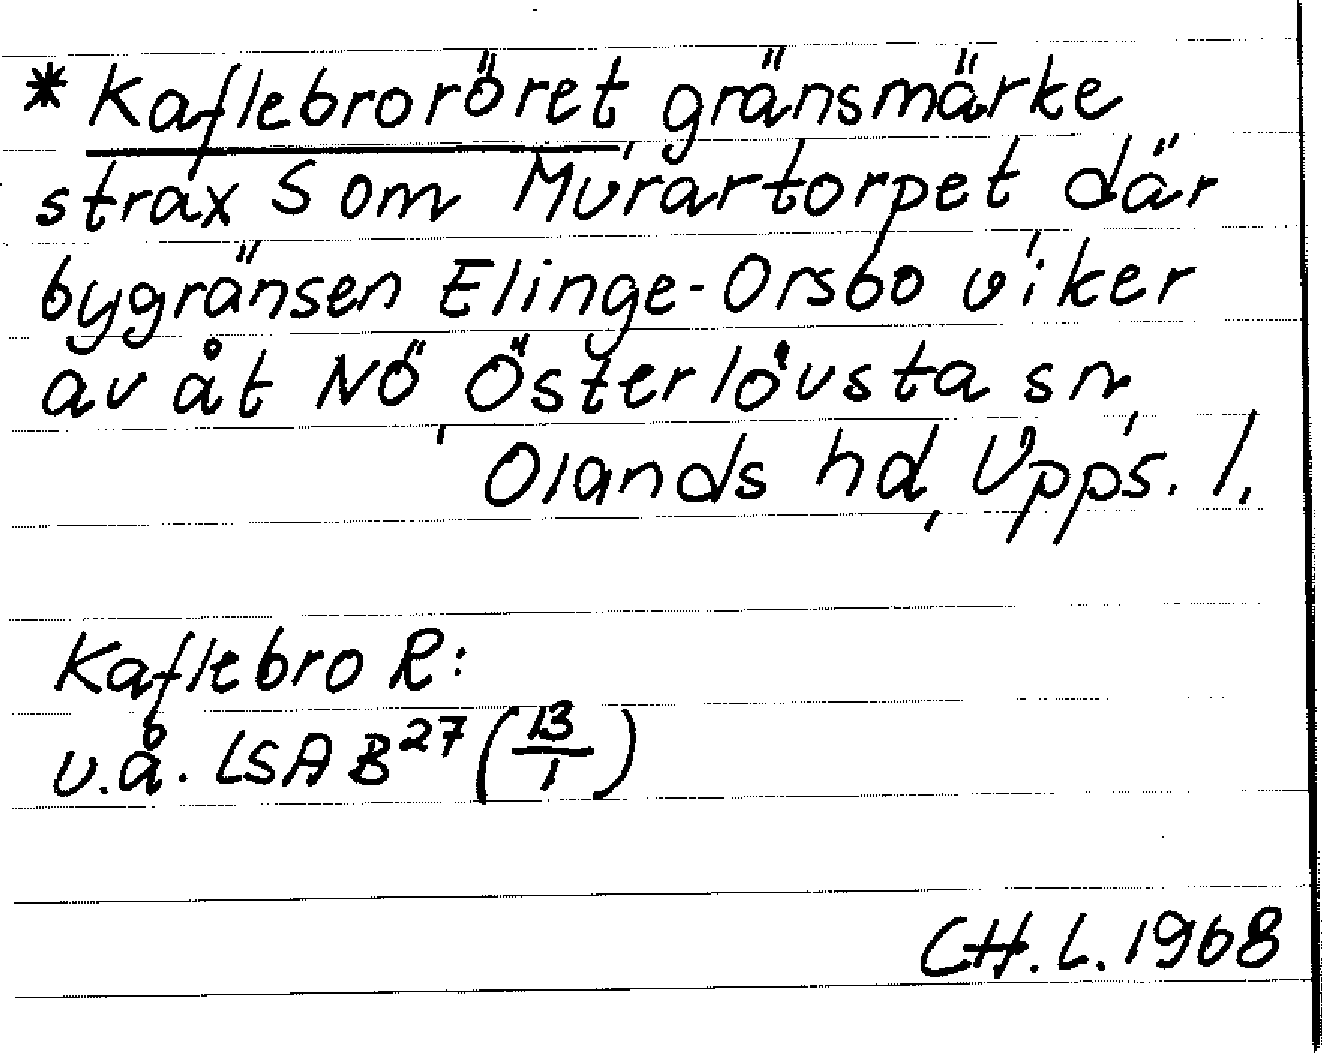 * Kaflebroröret gränsmärke
strax S om Murartorpet där
bygränsen Elinge-Orsbo viker
av åt NÖ Österlövsta sn,
Olands hd, Upps. l.
Kaflebro R:
u.å. LSA B²⁷ (13/1)
CH.L. 1968